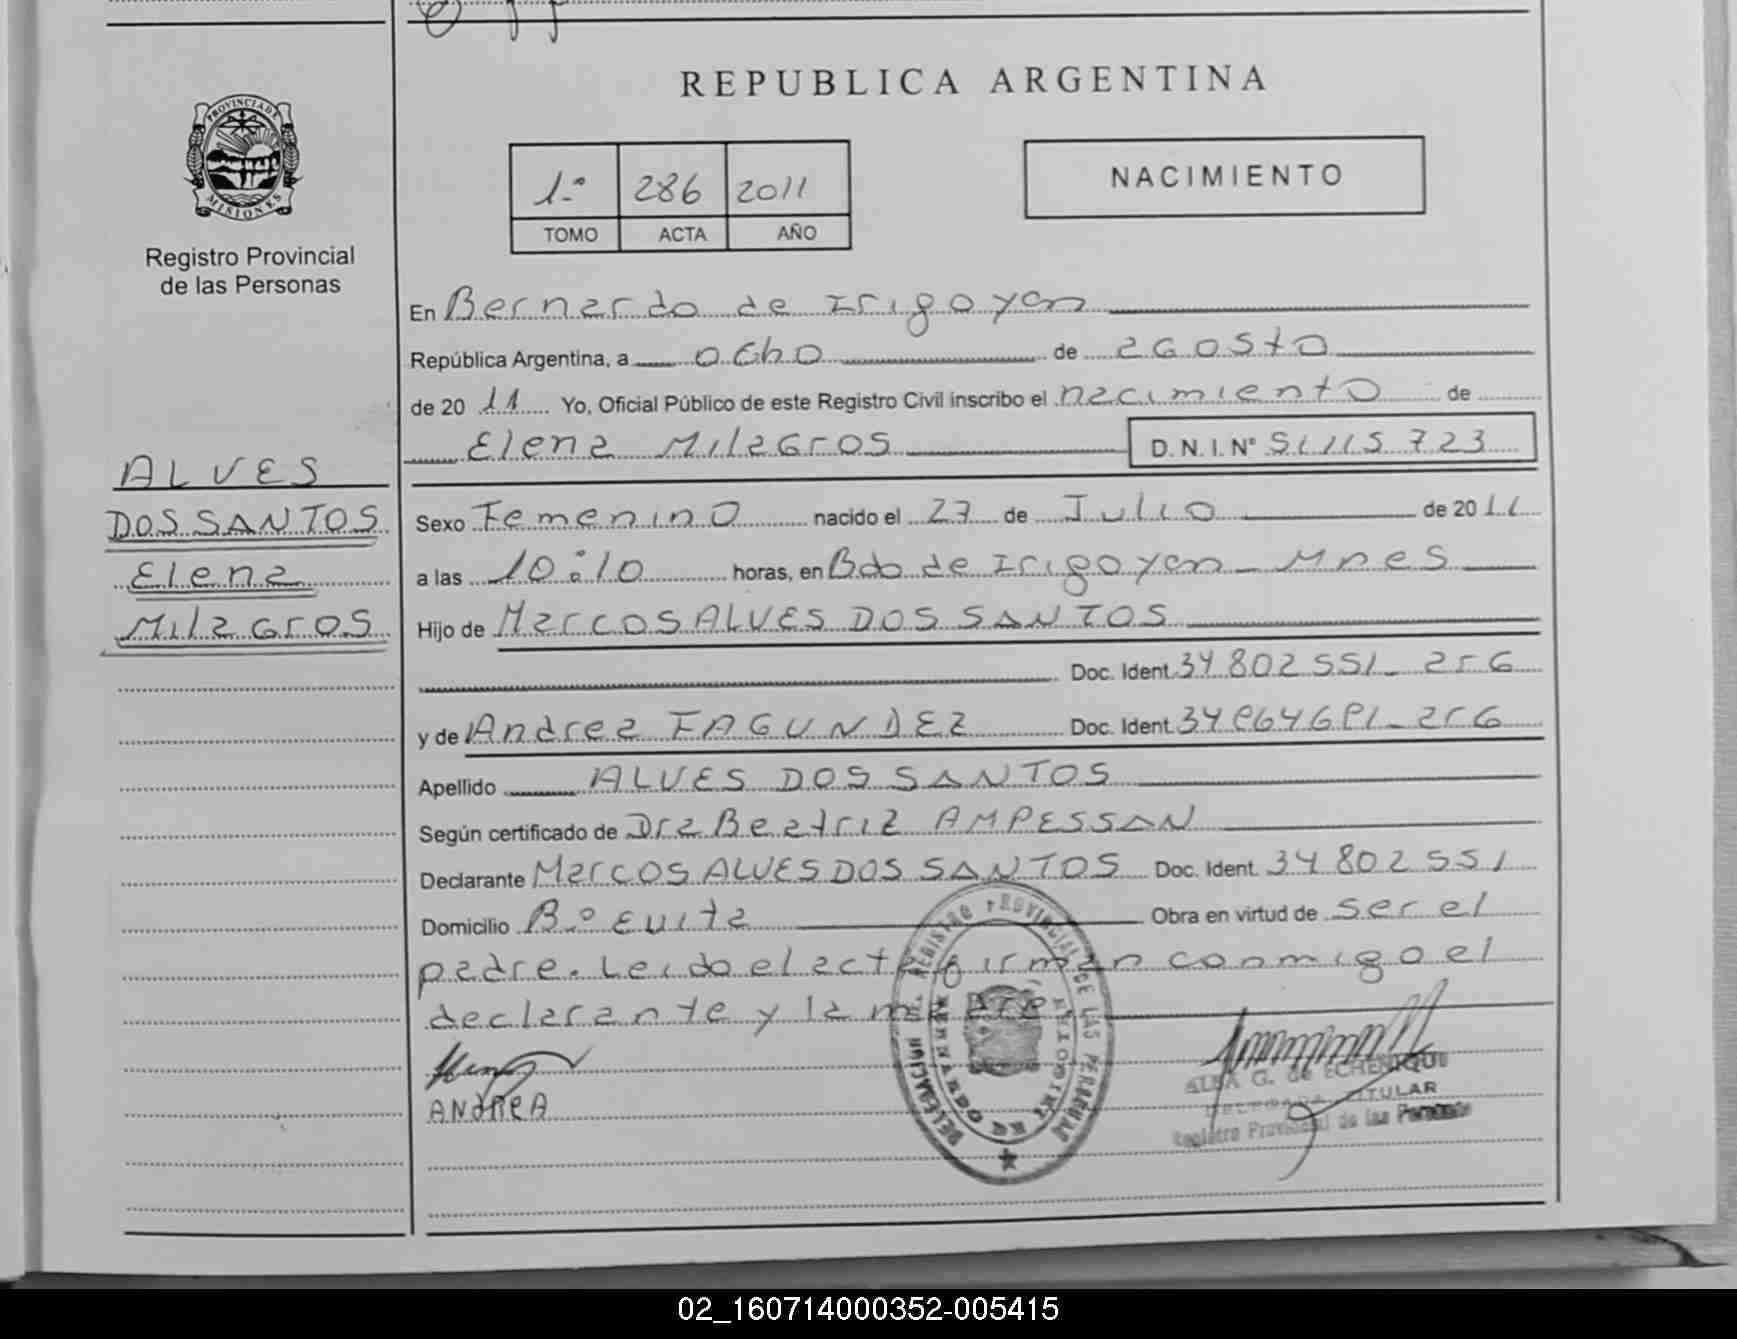 REPUBLICA ARGENTINA
PROVINCIA DE
MISIONES
Registro Provincial
de las Personas
1.º 286 2011
TOMO ACTA AÑO
NACIMIENTO
ALVES
DOS SANTOS
Elena
Milagros
En Bernardo de Irigoyen
República Argentina, a ocho de agosto
de 20 11 Yo, Oficial Público de este Registro Civil inscribo el nacimiento de
Elena Milagros D.N.I. Nº 51115.723
Sexo Femenino nacido el 27 de Julio de 2011
a las 10:10 horas, en Bdo de Irigoyen - Mnes
Hijo de Marcos ALVES DOS SANTOS
Doc. Ident. 34802551- arg
y de Andrea FAGUNDEZ Doc. Ident. arg
Apellido ALVES DOS SANTOS
Según certificado de Dra Beatriz AMPESSAN
Declarante Marcos ALVES DOS SANTOS Doc. Ident. 34802551
Domicilio B.º Evita Obra en virtud de ser el
padre. Leído el acta firman conmigo el
declarante y la madre
ANdReA
DELEGACIÓN DEL REGISTRO PROVINCIAL DE LAS PERSONAS
ALBA G. de ECHENIQUE
DELEGADA TITULAR
Registro Provincial de las Personas
02_160714000352-005415